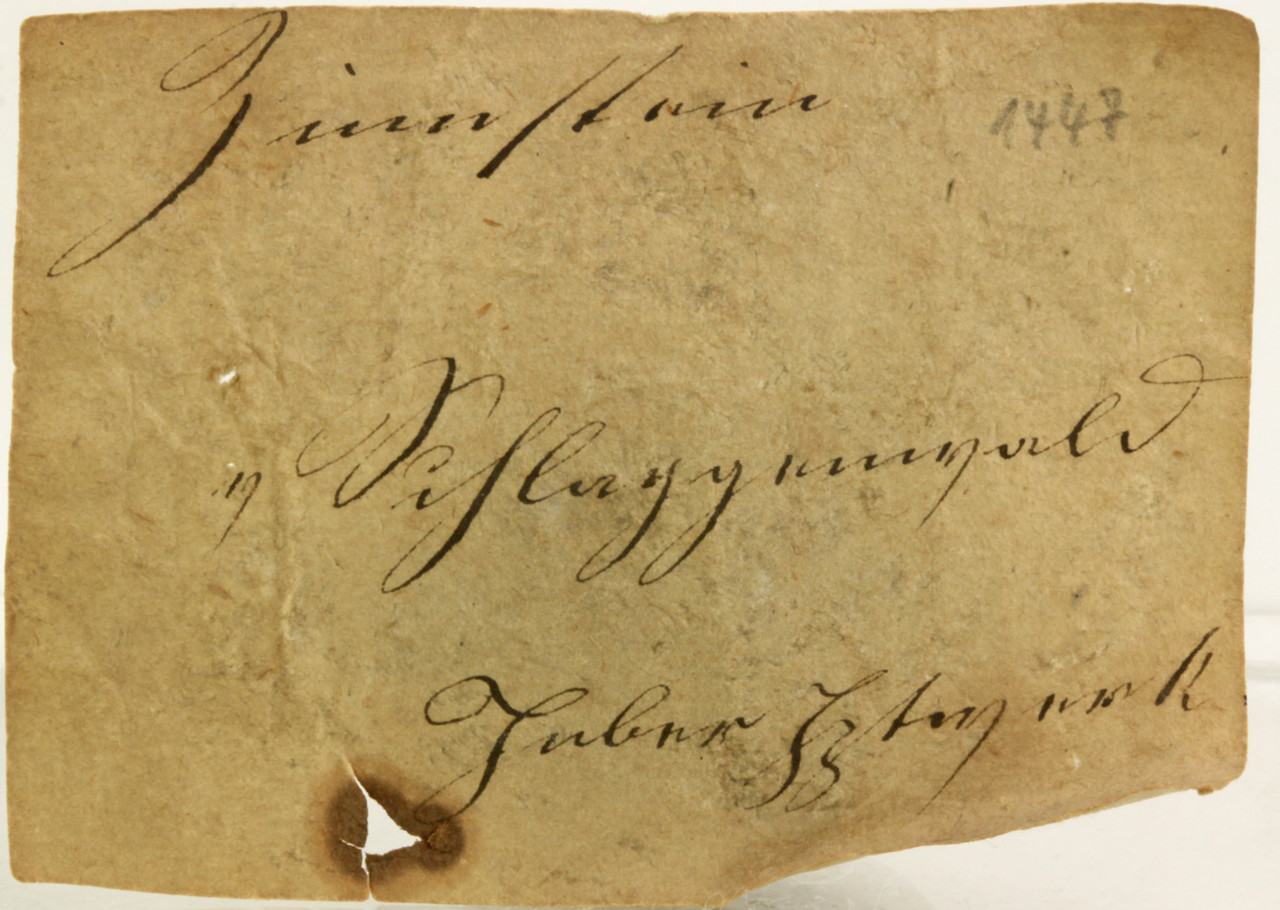 Zinnstein 1447
v Schlaggenwald
Huber Hptwerk